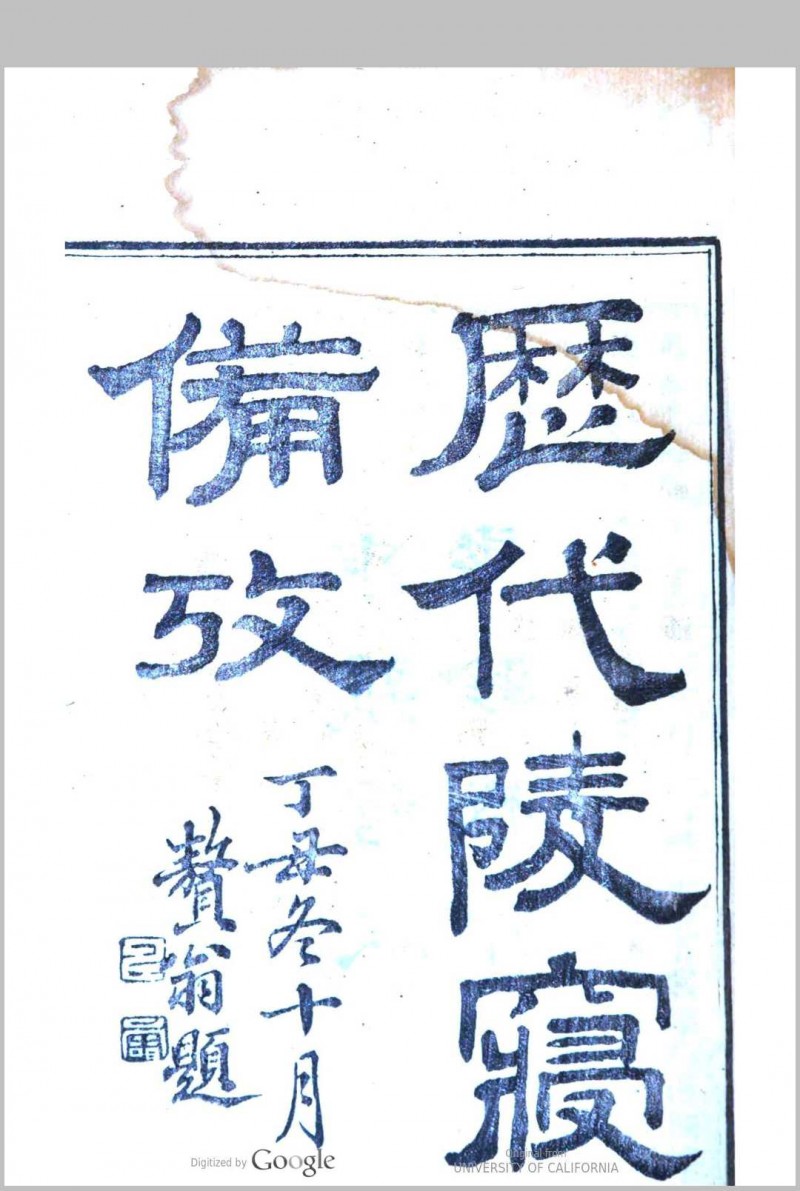 歷代陵寢
備攷
丁丑冬十月
贅翁題
Digitized by Google
Original from
UNIVERSITY OF CALIFORNIA